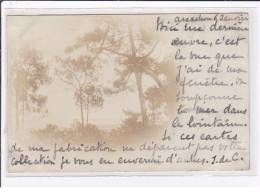 arcachon 6 Janvier
Voici ma dernière
œuvre, c'est
la vue que
j'ai de ma
fenêtre. On
soupçonne
la mer dans
le lointain.
Si ces cartes
de ma fabrication ne déparent pas votre
collection je vous en enverrai d'autres. J. de C.